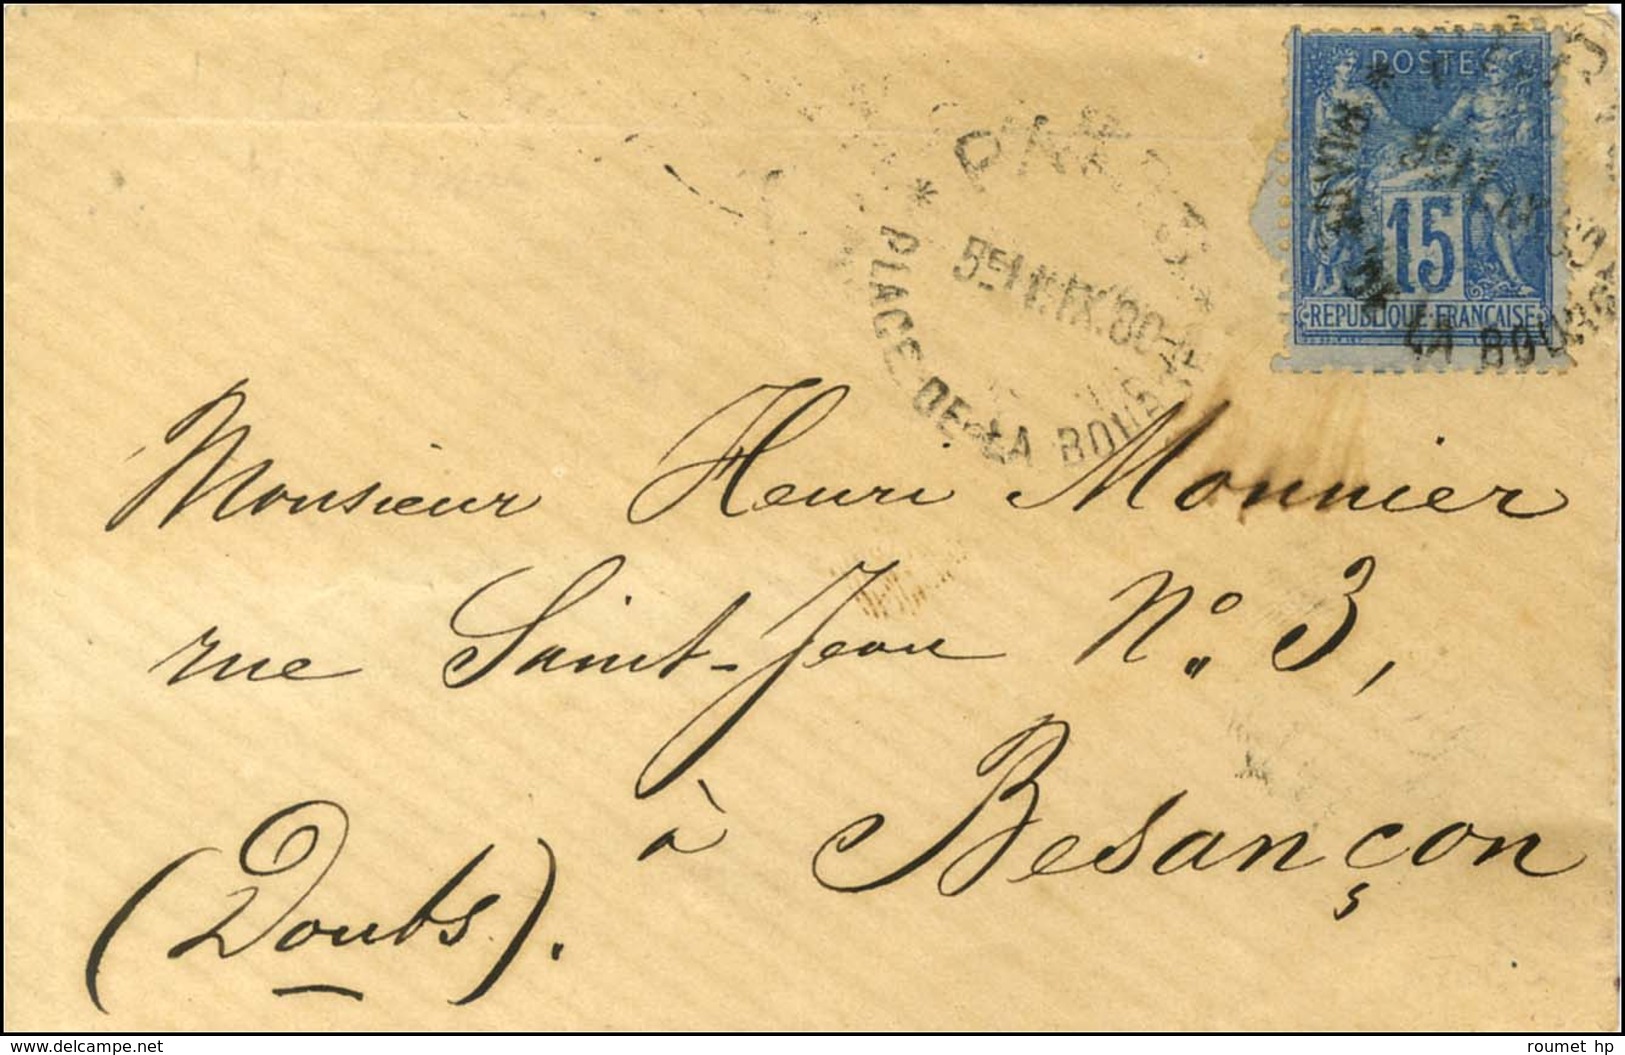 POSTES
15
REPUBLIQUE FRANÇAISE
LA BOURSE
PARIS
5E/1 11.IX.80
PLACE DE LA BOURSE
Monsieur Henri Monnier
rue Saint-Jean N° 3,
à Besançon
(Doubs).
www.delcampe.net
roumet hp